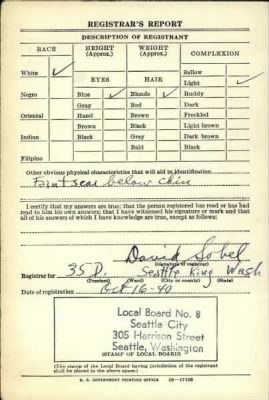 REGISTRAR'S REPORT
DESCRIPTION OF REGISTRANT
RACE HEIGHT (Approx.) WEIGHT (Approx.) COMPLEXION
White ✓ Sallow
EYES HAIR Light ✓
Negro Blue ✓ Blonde ✓ Ruddy
Gray Red Dark
Oriental Hazel Brown Freckled
Brown Black Light brown
Indian Black Gray Dark brown
Bald Black
Filipino
Other obvious physical characteristics that will aid in identification
Faint scar below chin
I certify that my answers are true; that the person registered has read or has had
read to him his own answers; that I have witnessed his signature or mark and that
all of his answers of which I have knowledge are true, except as follows:
David Sobel
(Signature of registrar)
Registrar for 35 D. Seattle King Wash
(Precinct) (Ward) (City or county) (State)
Date of registration Oct 16-40
Local Board No. 8
Seattle City
305 Harrison Street
Seattle, Washington
(STAMP OF LOCAL BOARD)
(The stamp of the Local Board having jurisdiction of the registrant
shall be placed in the above space.)
U. S. GOVERNMENT PRINTING OFFICE